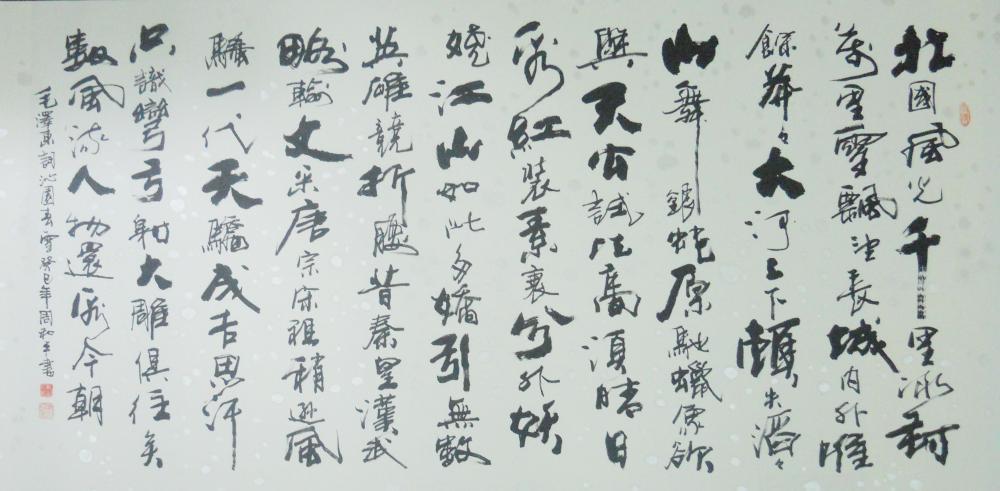 北國風光千里冰封
萬里雪飄望長城内外惟
餘莽々大河上下頓失滔々
山舞銀蛇原馳蠟像欲
與天公試比高須晴日
看紅裝素裹分外妖
嬈江山如此多嬌引無數
英雄競折腰昔秦皇漢武
略輸文采唐宗宋祖稍遜風
騷一代天驕成吉思汗
只識彎弓射大雕俱往矣
數風流人物還看今朝
毛澤東詞沁園春雪癸巳年周和平書